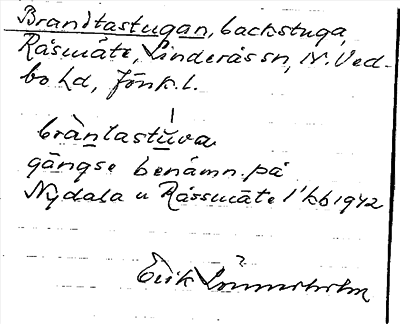 Brandtastugan, backstuga,
Råsmäte, Linderås sn, N. Ved-
bo hd, Jönk. l.
bràntastùva
gängse benämn. på
Nydala u Råssmäte 1/1 kb 1942
Erik